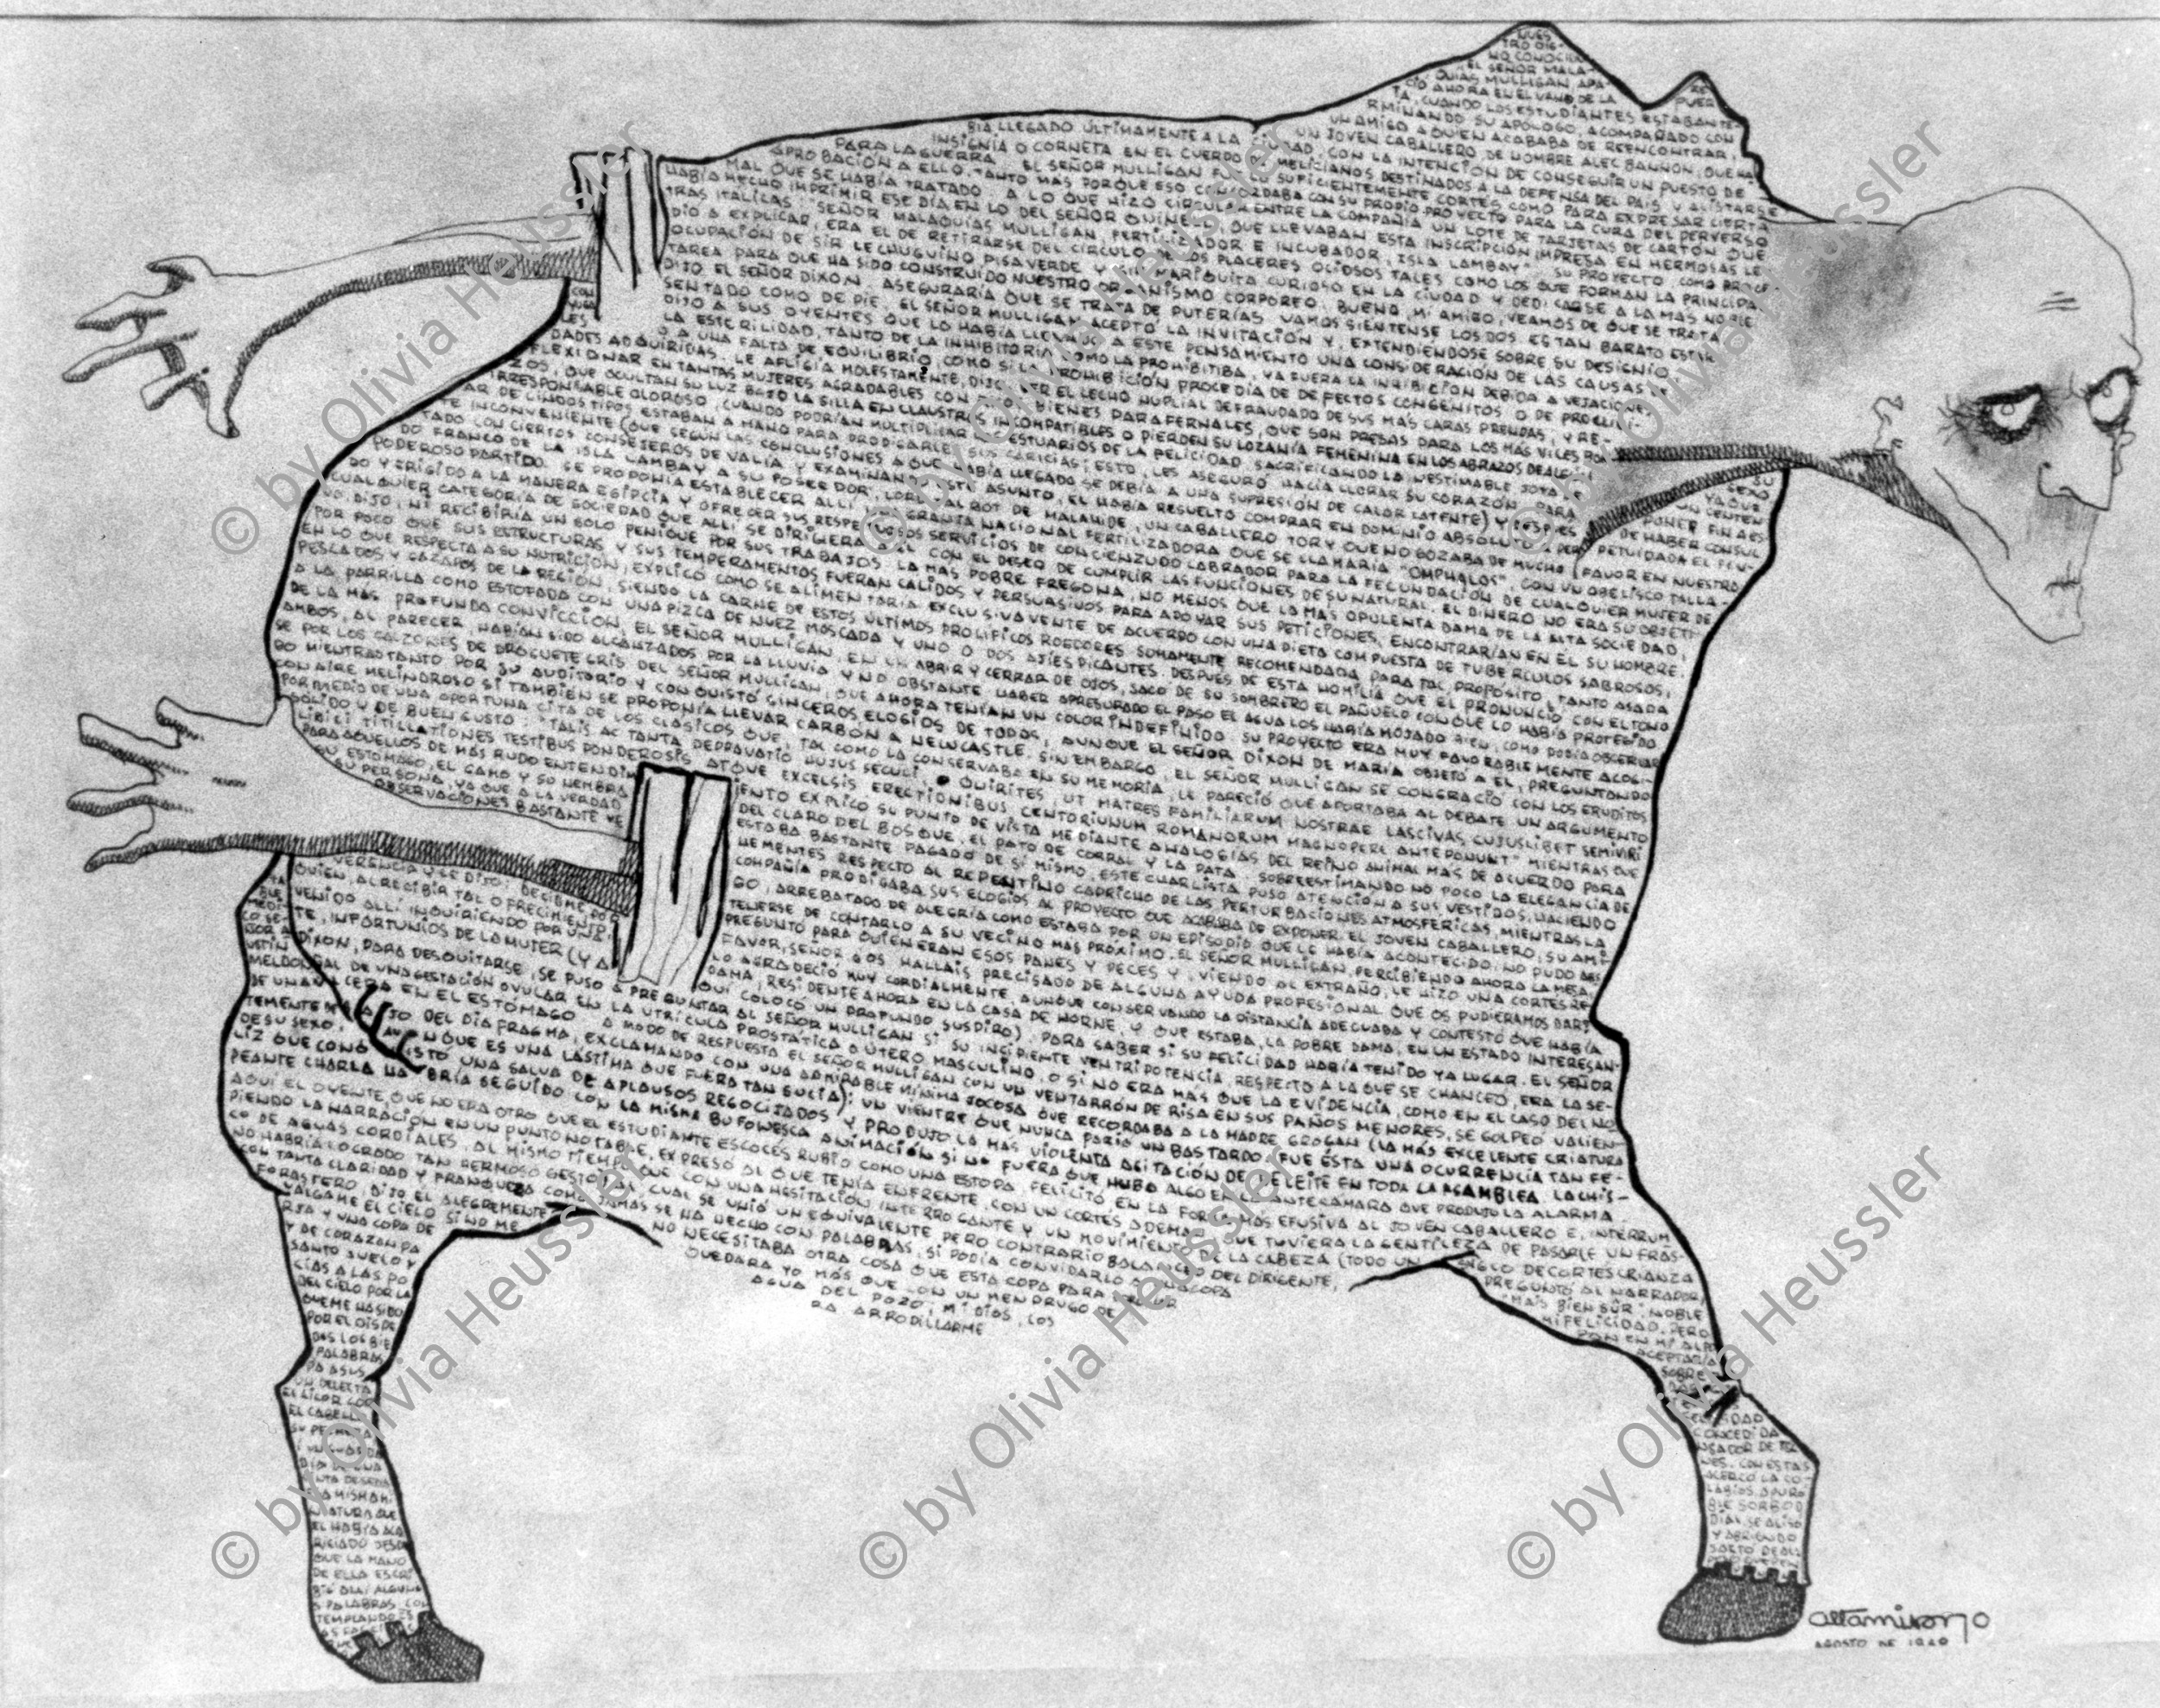 NUES
TRO DIG-
NO CONOCIDO
EL SEÑOR MALA-
QUIAS MULLIGAN APA-
RE
CIÓ AHORA EN EL VANO DE LA
PUER
TA, CUANDO LOS ESTUDIANTES ESTABAN TE-
RMINANDO SU APÓLOGO, ACOMPAÑADO CON
UN AMIGO A QUIEN ACABABA DE REENCONTRAR,
UN JOVEN CABALLERO DE NOMBRE ALEC BANNON, QUE HA
BIA LLEGADO ÚLTIMAMENTE A LA CIUDAD, CON LA INTENCIÓN DE CONSEGUIR UN PUESTO DE
INSIGNIA O CORNETA EN EL CUERPO DE MELIZIANOS DESTINADOS A LA DEFENSA DEL PAIS Y ALISTARSE
PARA LA GUERRA. EL SEÑOR MULLIGAN LO SUFICIENTEMENTE CORTÉS COMO PARA EXPRESAR CIERTA
APROBACIÓN A ELLO, TANTO MAS PORQUE ESO CONCORDABA CON SU PROPIO PROYECTO PARA LA CURA DEL PERVERSO
MAL QUE SE HABÍA TRATADO. A LO QUE HIZO CIRCULAR ENTRE LA COMPAÑÍA UN LOTE DE TARJETAS DE CARTÓN QUE
HABÍA HECHO IMPRIMIR ESE DÍA EN LO DEL SEÑOR QUINELL, QUE LLEVABAN ESTA INSCRIPCIÓN IMPRESA EN HERMOSAS LE
TRAS ITÁLICAS: "SEÑOR MALAQUÍAS MULLIGAN, FERTILIZADOR E INCUBADOR, ISLA LAMBAY". SU PROYECTO, COMO PROCE
DIÓ A EXPLICAR, ERA EL DE RETIRARSE DEL CÍRCULO DE LOS PLACERES OCIOSOS TALES COMO LOS QUE FORMAN LA PRINCIPAL
OCUPACIÓN DE SIR LECHUGUINO PISAVERDE Y SIR MARIQUITA CURIOSO EN LA CIUDAD Y DEDICARSE A LA MAS NOBLE
TAREA PARA QUE HA SIDO CONSTRUIDO NUESTRO ORGANISMO CORPOREO. BUENO, MI AMIGO, VEAMOS DE QUE SE TRATA
DIJO EL SEÑOR DIXON. ASEGURARÍA QUE SE TRATA DE PUTERÍAS. VAMOS SIENTENSE LOS DOS. ES TAN BARATO ESTAR
SENTADO COMO DE PIE. EL SEÑOR MULLIGAN ACEPTÓ LA INVITACIÓN Y, EXTENDIÉNDOSE SOBRE SU DESIGNIO
DIJO A SUS OYENTES QUE LO HABÍA LLEVADO A ESTE PENSAMIENTO UNA CONSIDERACIÓN DE LAS CAUSAS DE
LA ESTERILIDAD, TANTO DE LA INHIBITORIA COMO LA PROHIBITIBA, YA FUERA LA INHIBICIÓN DEBIDA A VEJACIONES
CON
YUGA
LES O A UNA FALTA DE EQUILIBRIO, COMO SI LA PROHIBICIÓN PROCEDÍA DE DEFECTOS CONGÉNITOS O DE PROCLIVI-
DADES ADQUIRIDAS. LE AFLIGÍA MOLESTAMENTE, DIJO, VER EL LECHO NUPLIAL DEFRAUDADO DE SUS MAS CARAS PRENDAS, Y RE-
FLEXIONAR EN TANTAS MUJERES AGRADABLES CON BIENES PARAFERNALES, QUE SON PRESAS PARA LOS MAS VILES BON
ZOS, QUE OCULTAN SU LUZ BAJO LA SILLA EN CLAUSTROS INCOMPATIBLES O PIERDEN SU LOZANÍA FEMENINA EN LOS ABRAZOS DE ALGÚN
IRRESPONSABLE OLOROSO, CUANDO PODRÍAN MULTIPLICAR LOS ESTUARIOS DE LA FELICIDAD, SACRIFICANDO LA INESTIMABLE JOYA DE SU
SEXO
AR DE LINDOS TIPOS ESTABAN A MANO PARA PRODIGARLES SUS CARICIAS; ESTO, LES ASEGURÓ HACÍA LLORAR SU CORAZÓN. PARA
YA QUE
UN CENTEN
PONER FIN A ES
TE INCONVENIENTE (QUE SEGÚN LAS CONCLUSIONES A QUE HABÍA LLEGADO SE DEBÍA A UNA SUPRESIÓN DE CALOR LATENTE) Y DESPUES
DE HABER CONSUL
TADO CON CIERTOS CONSEJEROS DE VALIA Y EXAMINANDO ESTE ASUNTO, EL HABÍA RESUELTO COMPRAR EN DOMINIO ABSOLUTO A PER
PETUIDAD EL FEU
DO FRANCO DE LA ISLA LAMBAY A SU POSEEDOR, LORD TALBOT DE MALAHIDE, UN CABALLERO TORY QUE NO GOZABA DE MUCHO FAVOR EN NUESTRO
PODEROSO PARTIDO. SE PROPONÍA ESTABLECER ALLÍ UNA GRANJA NACIONAL FERTILIZADORA QUE SE LLAMARIA "OMPHALOS", CON UN OBELISCO TALLA-
DO Y ERIGIDO A LA MANERA EGIPCIA Y OFRECER SUS RESPETUOSOS SERVICIOS DE CONCIENZUDO LABRADOR PARA LA FECUNDACIÓN DE CUALQUIER MUJER DE
CUALQUIER CATEGORÍA DE SOCIEDAD QUE ALLÍ SE DIRIGIERA A ÉL CON EL DESEO DE CUMPLIR LAS FUNCIONES DE SU NATURAL. EL DINERO NO ERA SU OBJETI
VO, DIJO, NI RECIBIRÍA UN SOLO PENIQUE POR SUS TRABAJOS. LA MAS POBRE FREGONA, NO MENOS QUE LA MAS OPULENTA DAMA DE LA ALTA SOCIEDAD,
POR POCO QUE SUS ESTRUCTURAS Y SUS TEMPERAMENTOS FUERAN CALIDOS Y PERSUASIVOS PARA APOYAR SUS PETICIONES, ENCONTRARÍAN EN ÉL SU HOMBRE.
EN LO QUE RESPECTA A SU NUTRICIÓN, EXPLICÓ COMO SE ALIMENTARÍA EXCLUSIVAVENTE DE ACUERDO CON UNA DIETA COMPUESTA DE TUBÉRCULOS SABROSOS,
PESCADOS Y GAZAPOS DE LA REGIÓN, SIENDO LA CARNE DE ESTOS ÚLTIMOS PROLIFICOS ROEDORES SUMAMENTE RECOMENDADA PARA TAL PROPÓSITO, TANTO ASADA
A LA PARRILLA COMO ESTOFADA CON UNA PIZCA DE NUEZ MOSCADA Y UNO O DOS AJÍES PICANTES. DESPUES DE ESTA HOMILÍA QUE EL PRONUNCIÓ CON EL TONO
DE LA MAS PROFUNDA CONVICCIÓN, EL SEÑOR MULLIGAN, EN UN ABRIR Y CERRAR DE OJOS, SACÓ DE SU SOMBRERO EL PAÑUELO CON QUE LO HABÍA PROTEGIDO
AMBOS, AL PARECER, HABÍAN SIDO ALCANZADOS POR LA LLUVIA Y NO OBSTANTE HABER APRESURADO EL PASO EL AGUA LOS HABÍA MOJADO BIEN, COMO PODÍA OBSERVAR
SE POR LOS CALZONES DE DROGUETE GRIS DEL SEÑOR MULLIGAN, QUE AHORA TENÍAN UN COLOR INDEFINIDO. SU PROYECTO ERA MUY FAVORABLEMENTE ACOGI-
DO MIENTRAS TANTO POR SU AUDITORIO Y CONQUISTÓ SINCEROS ELOGIOS DE TODOS, AUNQUE EL SEÑOR DIXON DE MARÍA OBJETÓ A EL, PREGUNTANDO
CON AIRE MELINDROSO SI TAMBIÉN SE PROPONÍA LLEVAR CARBÓN A NEWCASTLE. SIN EMBARGO, EL SEÑOR MULLIGAN SE CONGRACIÓ CON LOS ERUDITOS
POR MEDIO DE UNA OPORTUNA CITA DE LOS CLÁSICOS QUE, TAL COMO LA CONSERVABA EN SU MEMORIA, LE PARECIÓ QUE APORTABA AL DEBATE UN ARGUMENTO
SÓLIDO Y DE BUEN GUSTO: "TALIS AC TANTA DEPRAVATIO HUJUS SECULI, O QUIRITES, UT MATRES FAMILIARUM NOSTRAE LASCIVAS CUJUSLIBET SEMIVIRI
LIBICI TITILLATIONES TESTIBUS PONDEROSIS ATQUE EXCELSIS ERECTIONIBUS CENTORIUNUM ROMANORUM MAGNOPERE ANTEPONUNT" MIENTRAS QUE
PARA AQUELLOS DE MÁS RUDO ENTENDIM IENTO EXPLICÓ SU PUNTO DE VISTA MEDIANTE ANALOGÍAS DEL REINO ANIMAL MAS DE ACUERDO PARA
SU ESTOMAGO, EL GAMO Y SU HEMBRA DEL CLARO DEL BOSQUE, EL PATO DE CORRAL Y LA PATA. SOBREESTIMANDO NO POCO LA ELEGANCIA DE
SU PERSONA, YA QUE A LA VERDAD ESTABA BASTANTE PAGADO DE SÍ MISMO, ESTE CHARLISTA PUSO ATENCIÓN A SUS VESTIDOS, HACIENDO
OBSERVACIONES BASTANTE VE HEMENTES RESPECTO AL REPENTINO CAPRICHO DE LAS PERTURBACIONES ATMOSFÉRICAS, MIENTRAS LA
COMPAÑÍA PRODIGABA SUS ELOGIOS AL PROYECTO QUE ACABABA DE EXPONER. EL JOVEN CABALLERO, SU AMI-
GO, ARREBATADO DE ALEGRÍA COMO ESTABA POR UN EPISODIO QUE LE HABÍA ACONTECIDO, NO PUDO ABS
TENERSE DE CONTARLO A SU VECINO MAS PRÓXIMO. EL SEÑOR MULLIGAN, PERCIBIENDO AHORA LA MESA,
PREGUNTÓ PARA QUIEN ERAN ESOS PANES Y PECES Y, VIENDO AL EXTRAÑO, LE HIZO UNA CORTES RE
VERENCIA Y LE DIJO: DECIDME, POR FAVOR, SEÑOR, ¿OS HALLAIS PRECISADO DE ALGUNA AYUDA PROFESIONAL QUE OS PUDIÉRAMOS DAR?
QUIEN, AL RECIBIR TAL OFRECIMIENTO, LO AGRADECIÓ MUY CORDIALMENTE, AUNQUE CONSERVANDO LA DISTANCIA ADECUADA Y CONTESTÓ QUE HABÍA
VENIDO ALLÍ INQUIRIENDO POR UNA DAMA, RESIDENTE AHORA EN LA CASA DE HORNE, Y QUE ESTABA, LA POBRE DAMA, EN UN ESTADO INTERESAN-
TE, INFORTUNIOS DE LA MUJER (Y AQUÍ COLOCÓ UN PROFUNDO SUSPIRO), PARA SABER SI SU FELICIDAD HABÍA TENIDO YA LUGAR. EL SEÑOR
DIXON, PARA DESQUITARSE, SE PUSO A PREGUNTAR AL SEÑOR MULLIGAN SI SU INCIPIENTE VENTRIPOTENCIA, RESPECTO A LA QUE SE CHANCEÓ, ERA LA SE-
ÑAL DE UNA GESTACIÓN OVULAR EN LA UTRÍCULA PROSTÁTICA O ÚTERO MASCULINO, O SI NO ERA MÁS QUE LA EVIDENCIA, COMO EN EL CASO DEL NO
TA
BLE
MEDI
CO SE-
ÑOR A
USTIN
MELDON, DE UNA CERA EN EL ESTÓMAGO. A MODO DE RESPUESTA EL SEÑOR MULLIGAN CON UN VENTARRÓN DE RISA EN SUS PAÑOS MENORES, SE GOLPEÓ VALIEN-
TEMENTE DEBAJO DEL DIAFRAGMA, EXCLAMANDO CON UNA ADMIRABLE MÍMICA JOCOSA QUE RECORDABA A LA MADRE GROGAN (LA MÁS EXCELENTE CRIATURA
DE SU SEXO, AUNQUE ES UNA LÁSTIMA QUE FUERA TAN SUCIA): UN VIENTRE QUE NUNCA PARIÓ UN BASTARDO. FUE ÉSTA UNA OCURRENCIA TAN FE-
LIZ QUE CONQUISTÓ UNA SALVA DE APLAUSOS REGOCIJADOS Y PRODUJO LA MAS VIOLENTA AGITACIÓN DE DELEITE EN TODA LA ASAMBLEA. LA CHIS-
PEANTE CHARLA HABRÍA SEGUIDO CON LA MISMA BUFONESCA ANIMACIÓN SI NO FUERA QUE HUBO ALGO EN LA ANTECÁMARA QUE PRODUJO LA ALARMA
AQUÍ EL OYENTE, QUE NO ERA OTRO QUE EL ESTUDIANTE ESCOCÉS RUBIO COMO UNA ESTOPA, FELICITÓ EN LA FORMA MÁS EFUSIVA AL JOVEN CABALLERO E, INTERRUM
PIENDO LA NARRACIÓN EN UN PUNTO NOTABLE, EXPRESÓ AL QUE TENÍA ENFRENTE CON UN CORTÉS ADEMAN QUE TUVIERA LA GENTILEZA DE PASARLE UN FRAS-
CO DE AGUAS CORDIALES, AL MISMO TIEMPO QUE CON UNA HESITACIÓN INTERROGANTE Y UN MOVIMIENTO DE LA CABEZA (TODO UN SIGLO DE CORTES CRIANZA
NO HABRÍA LOGRADO TAN HERMOSO GESTO) AL CUAL SE UNIÓ UN EQUIVALENTE PERO CONTRARIO BALANCEO DEL DIRIGENTE, PREGUNTÓ AL NARRADOR,
CON TANTA CLARIDAD Y FRANQUEZA COMO JAMAS SE HA HECHO CON PALABRAS, SI PODÍA CONVIDARLO A UNA COPA "MAIS BIEN SÛR", NOBLE
FORASTERO, DIJO EL ALEGREMENTE NO NECESITABA OTRA COSA QUE ESTA COPA PARA MI FELICIDAD. PERO
VÁLGAME EL CIELO SI NO ME QUEDARA YO MÁS QUE CON UN MENDRUGO DE PAN EN MI ALFO
RJA Y UNA COPA DE AGUA DEL POZO, MI DIOS, LOS ACEPTARÍA
Y DE CORAZON PA RA ARRODILLARME SOBRE
SANTO SUELO Y
CIAS A LAS PO
DEL CIELO POR LA
QUE ME HA SIDO CONCEDIDA
POR EL DISPE NSADOR DE TO
DOS LOS BIE NES. CON ESTAS
PALABRAS ACERCÓ LA CO
PA A SUS LABIOS, APURO
UN DELEITA BLE SORBO D
EL LICOR COR DIAL, SE ALISO
EL CABELLO Y ABRIENDO
SU PECHERA
DIO DE UNA
CINTA DE SEDA
LA MISMA MI
NIATURA QUE
EL HABÍA ACA
RICIADO DESDE
QUE LA MANO
DE ELLA ESCRI
BIÓ ALLÍ ALGUNA
S PALABRAS. CON
TEMPLANDO ES
altamirano
AGOSTO DE
© by Olivia Heussler
© by Olivia Heussler
© by Olivia Heussler
© by Olivia Heussler
© by Olivia Heussler
© by Olivia Heussler